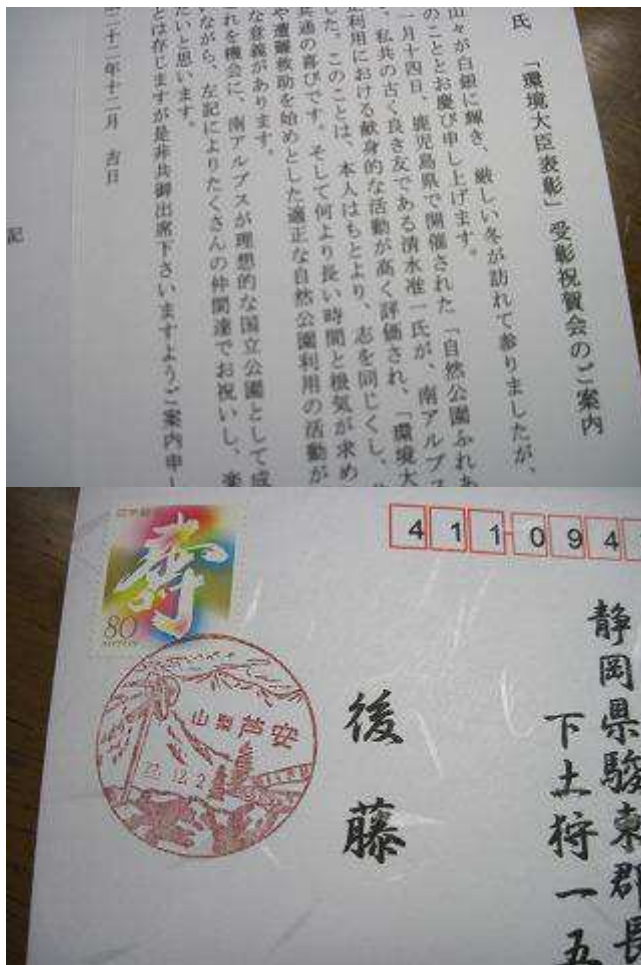 氏
「環境大臣表彰」受彰祝賀会のご案内
山々が白銀に輝き、厳しい冬が訪れて参りましたが、
のこととお慶び申し上げます。
一月十四日、鹿児島県で開催された「自然公園ふれあ
、私共の古く良き友である清水准一氏が、南アルプス
利用における献身的な活動が高く評価され、「環境大
した。このことは、本人はもとより、志を同じくし、
共通の喜びです。そして何より長い時間と根気が求め
や遭難救助を始めとした適正な自然公園利用の活動が
な意義があります。
れを機会に、南アルプスが理想的な国立公園として成
いながら、左記によりたくさんの仲間達でお祝いし、楽
たいと思います。
とは存じますが是非共御出席下さいますようご案内申し
二十二年十二月 吉日
記
日本郵便
寿
80
NIPPON
山梨 芦安
22.12.2
411-094
静岡県駿東郡長
下土狩一五
後藤